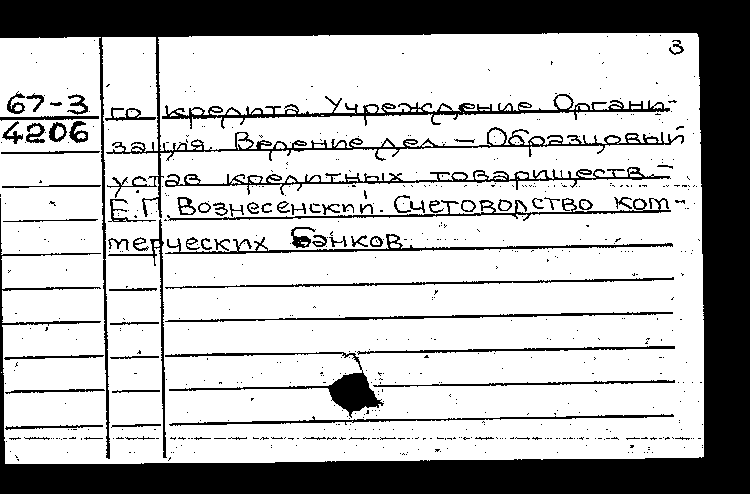 3
67-3 го кредита. Учреждение. Органи-
4206 зация. Ведение дел. — Образцовый
устав кредитных товариществ. —
Е.П. Вознесенский. Счетоводство ком-
мерческих банков.